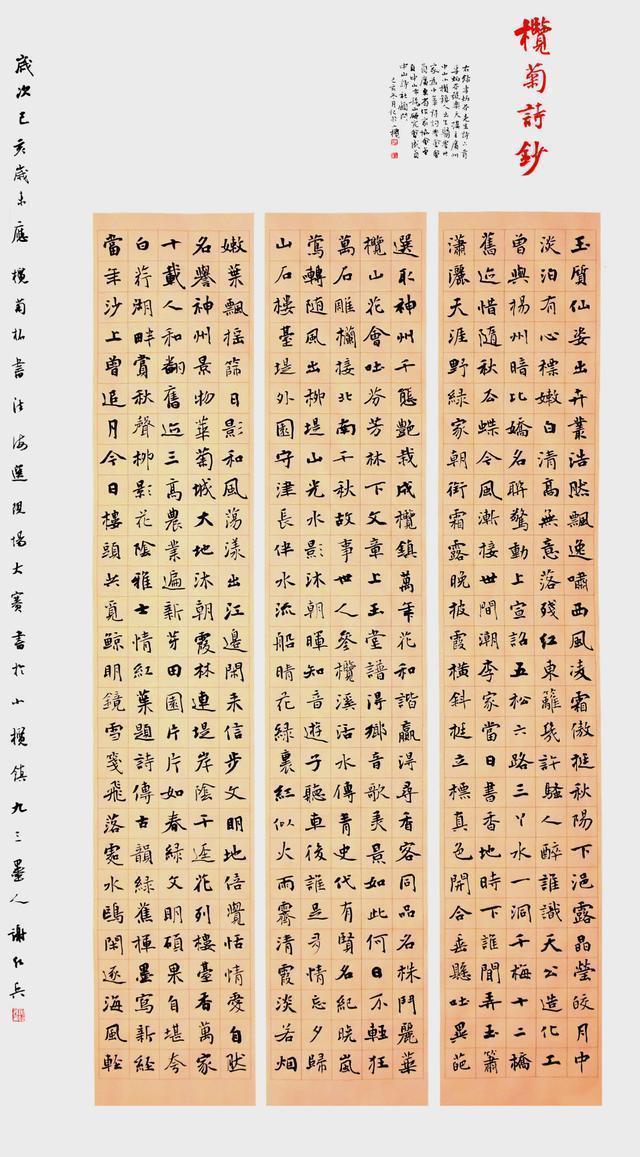 欖菊詩鈔
右錄李炳芬先生詩六首
中山小欖鎮人出生醫學世
家為中華詩詞學會會
中山詩社顧問
玉質仙姿出卉叢浩然飄逸嘯西風凌霜傲挺秋陽下浥露晶瑩皎月中
淡泊有心標嫩白清高無意落殘紅東籬幾許騷人醉誰識天公造化工
曾與楊州暗比嬌名聯驚動上宣詔五松六路三丫水一洞千梅十二橋
舊迹惜隨秋蝶今風漸接世間潮李家當日書香地時下誰聞弄玉簫
瀟灑天涯野綠家朝街霜露晚披霞橫斜挺立標真色開合垂懸吐異葩
選取神州千態艷栽成欖鎮萬年花和諧贏得尋香客同品名株鬥麗華
欖山花會吐芬芳林下文章上玉堂譜得鄉音歌美景如此何日不輕狂
萬石雕欄接北南千秋故事世人參欖溪活水傳青史代有賢名紀曉嵐
鶯轉随風出柳堤山光水影沐朝暉知音遊子聽車後誰是多情忘夕歸
山石樓臺堤外園守津長伴水流船晴花綠裏紅似火雨霽清霞淡若烟
嫩葉飄摇篩日影和風蕩漾出江邊閑来信步文明地倍覺怡情愛自然
名譽神州景物華菊城大地沐朝霞林連堤岸陰千迳花列樓臺香萬家
十載人和翻舊迹三高農業遍新芽田園片片如春綠文明碩果自堪夸
白荇湖畔賞秋聲柳影花陰雅士情紅葉題詩傳古韻綠蕉揮墨寫新經
當年沙上曾追月今日樓頭共覓鯨明鏡雪箋飛落處水鷗閑逐海風輕
歲次己亥歲末應欖菊杯書法海選現場大賽書於小欖鎮九三墨人謝仁兵